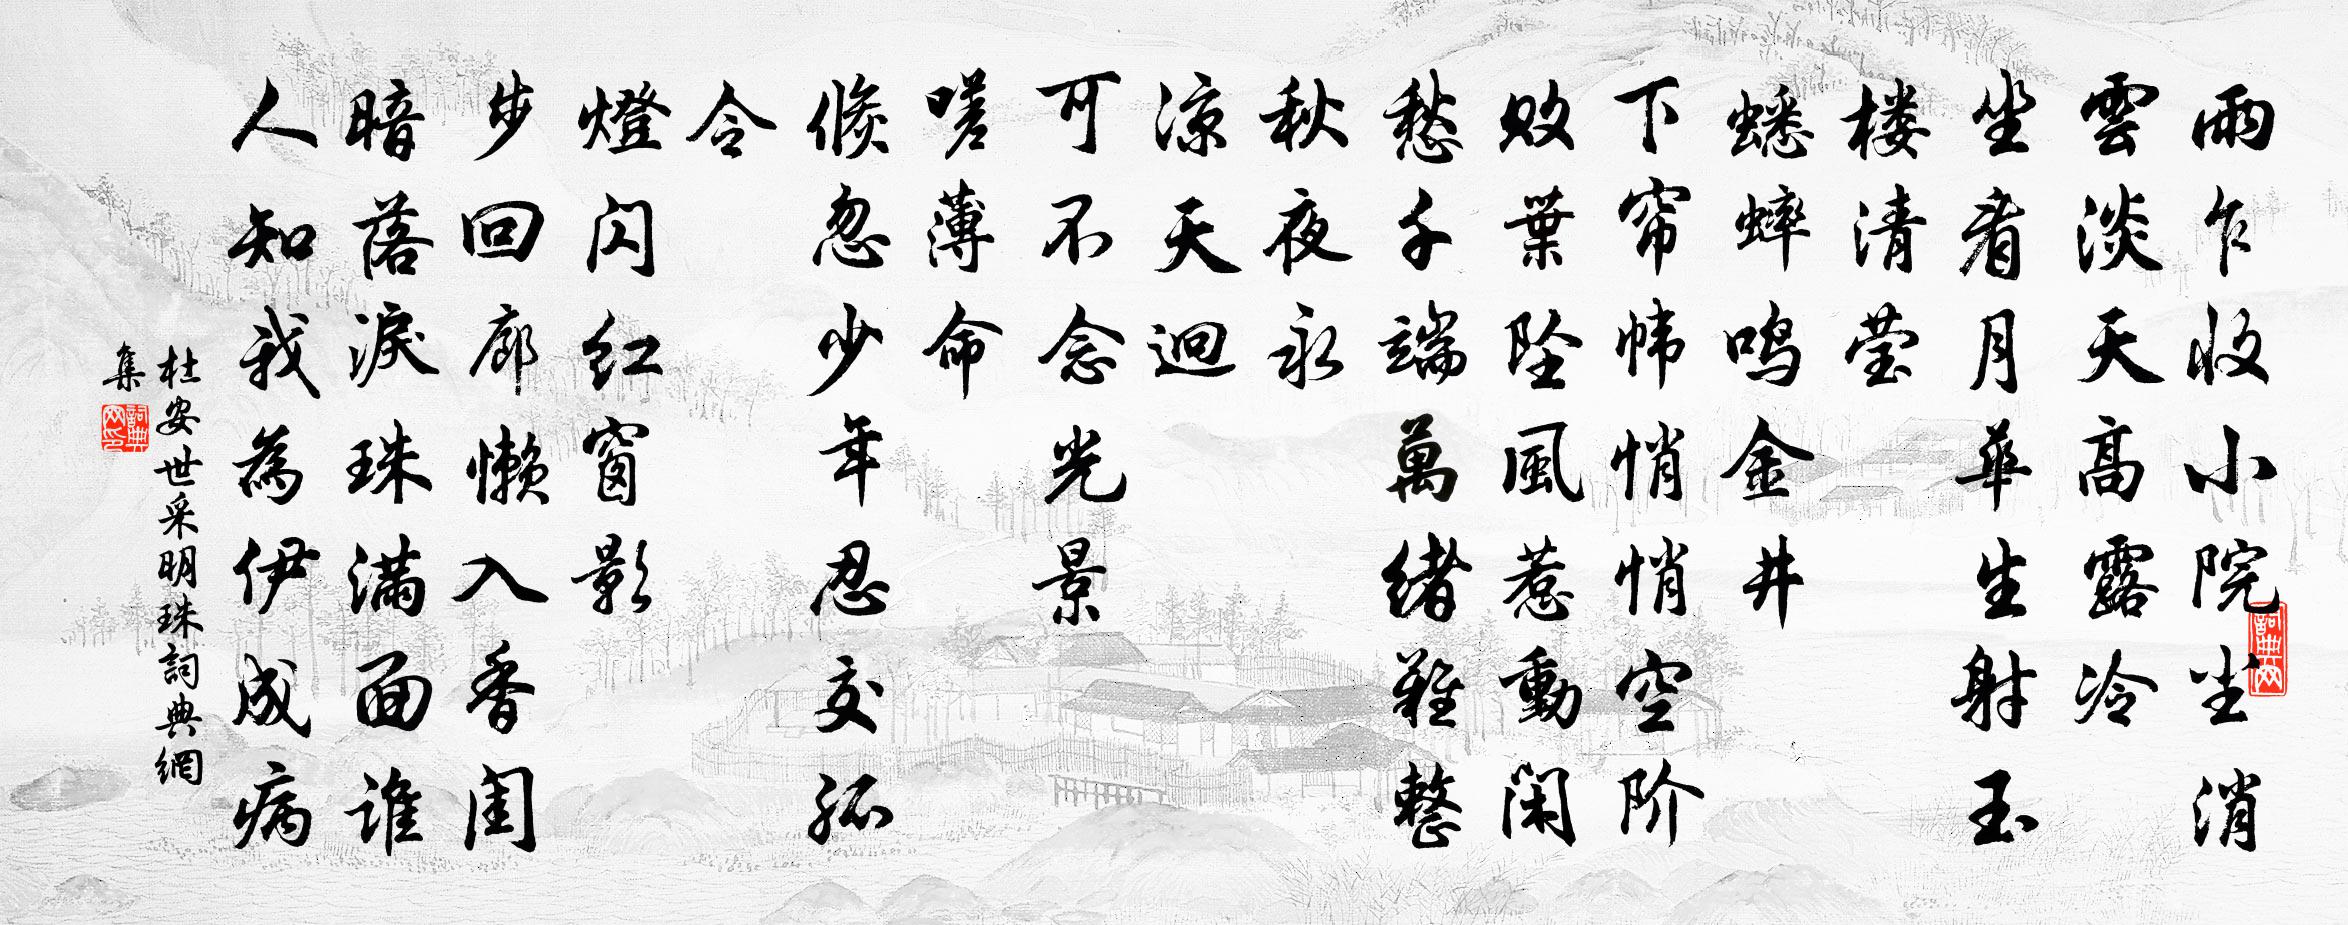 雨乍收小院尘消
雲淡天高露冷
坐看月華生射玉
楼清莹
蟋蟀鸣金井
下帘帏悄悄空阶
败葉坠風惹動闲
愁千端萬绪難整
秋夜永
凉天迴
可不念光景
嗟薄命
倏忽少年忍交孤
令
燈闪红窗影
步回廊懒入香闺
暗落淚珠满面谁
人知我為伊成病
杜安世采明珠詞典網
集
詞典网印
詞典网